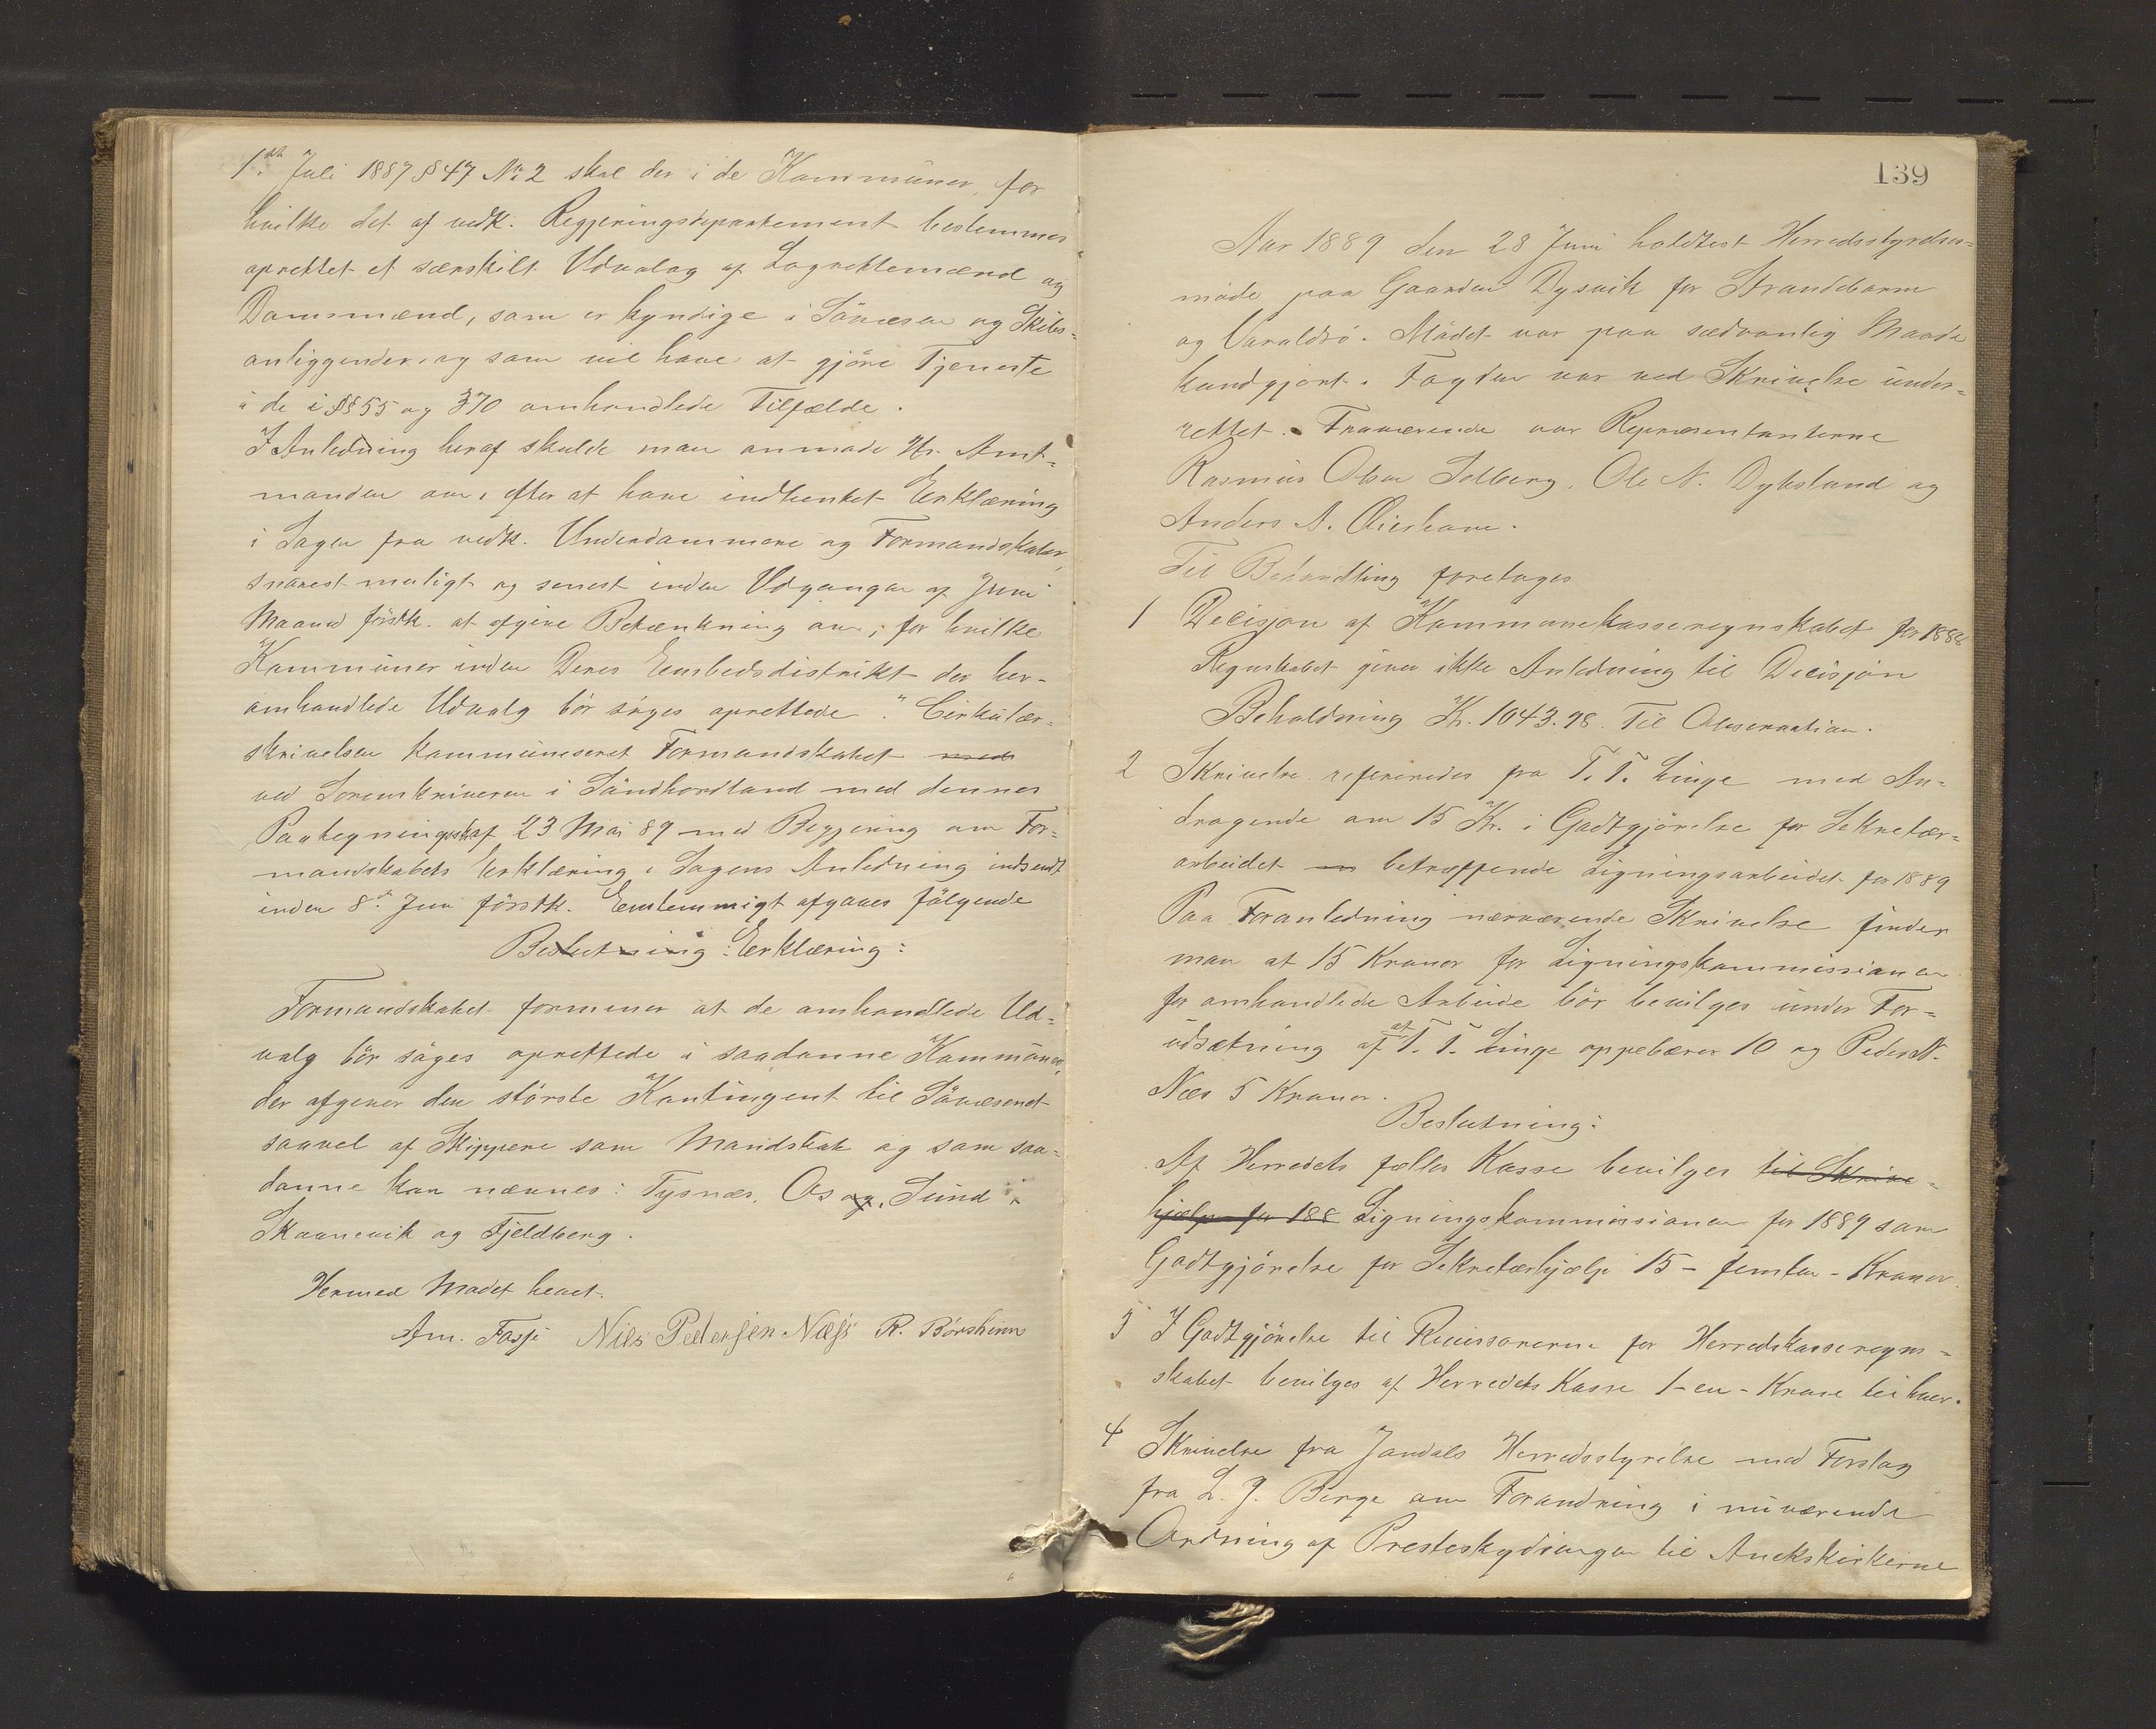 1ste Juli 1887 § 47 No 2 skal der i de Kommuner, for
hvilke det af vedk. Regjeringsdepartement bestemmes
oprettet et særskilt Udvalag af Lagrettemænd og
Domsmænd, som er kyndige i Sövæsen og Skibs-
anliggender, og som vil have at gjöre Tjeneste
i de i §§ 55 og 370 omhandlede Tilfælde.
I Anledning heraf skulde man anmode Hr. Amt-
manden om, efter at have indhentet Erklæring
i Sagen fra vedk. Underdommere og Formandskaber,
snarest muligt og senest inden Udgangen af Juni
Maaned förstk. at afgive Betænkning om, for hvilke
Kommuner inden Deres Embedsdistrikt der her-
omhandlede Udvalg bör söges oprettede." Cirkulær-
skrivelsen kommuniseret Formandskabet med
ved Sorenskriveren i Söndhordland med dennes
Paategningsskr. af 23 Mai 89 med Begjæring om For-
mandskabets Erklæring i Sagens Anledning indsendt
inden 8de Juni förstk. Enstemmigt afgaves fölgende
Beslutning: Erklæring:
Formandskabet formener at de omhandlede Ud-
valg bör söges oprettede i saadanne Kommuner,
der afgiver den störste Kontingent til Sövæsendet
saavel af Skippere som Mandskab og som saa-
danne kan nævnes: Tysnæs, Os og, Sund,
Skaanevik og Fjeldberg.
Hermed Mödet hævet.
Am. Fosse Niels Pedersen Næss R. Börsheim
139
Aar 1889 den 28 Juni holdtest Herredsstyrelses-
möde paa Gaarden Dysvik for Strandebarm
og Varaldsö. Mödet var paa sædvanlig Maade
kundgjort. Fogden var ved Skrivelse under-
rettet. Fraværende var Repræsentanterne
Rasmus Olsen Solberg, Ole N. Dyksland og
Anders A. Öierhavn.
Til Behandling foretages
1 Decisjon af Kommunekasseregnskabet for 1888
Regnskabet giver ikke Anledning til Decisjon
Beholdning Kr. 1043.98. Til Observation.
2 Skrivelse refereredes fra T. T. Linge med An-
dragende om 15 Kr. i Godtgjörelse for Sekretær-
arbeidet betræffende Ligningsarbeidet for 1889
Paa Foranledning nærværende Skrivelse finder
man at 15 Kroner for Ligningskommissionen
for omhandlede Arbeide bör bevilges under For-
udsætning af at T. T. Linge oppebærer 10 og Peder N.
Næs 5 Kroner.
Beslutning:
Af Herredets fælles Kasse bevilges til Skrive-
hjælp for 188 Ligningskommissionen for 1889 som
Godtgjörelse for Sekretærhjælp 15 - femten - Kroner.
3 I Godtgjörelse til Revisorerne for Herredskasseregn-
skabet bevilges af Herredets Kasse 1 - en - Krone til hver.
4 Skrivelse fra Jondals Herredsstyrelse med Forslag
fra L. J. Berge om Forandring i nuværende
Ordning af Presteskydsingen til Anekskirkerne